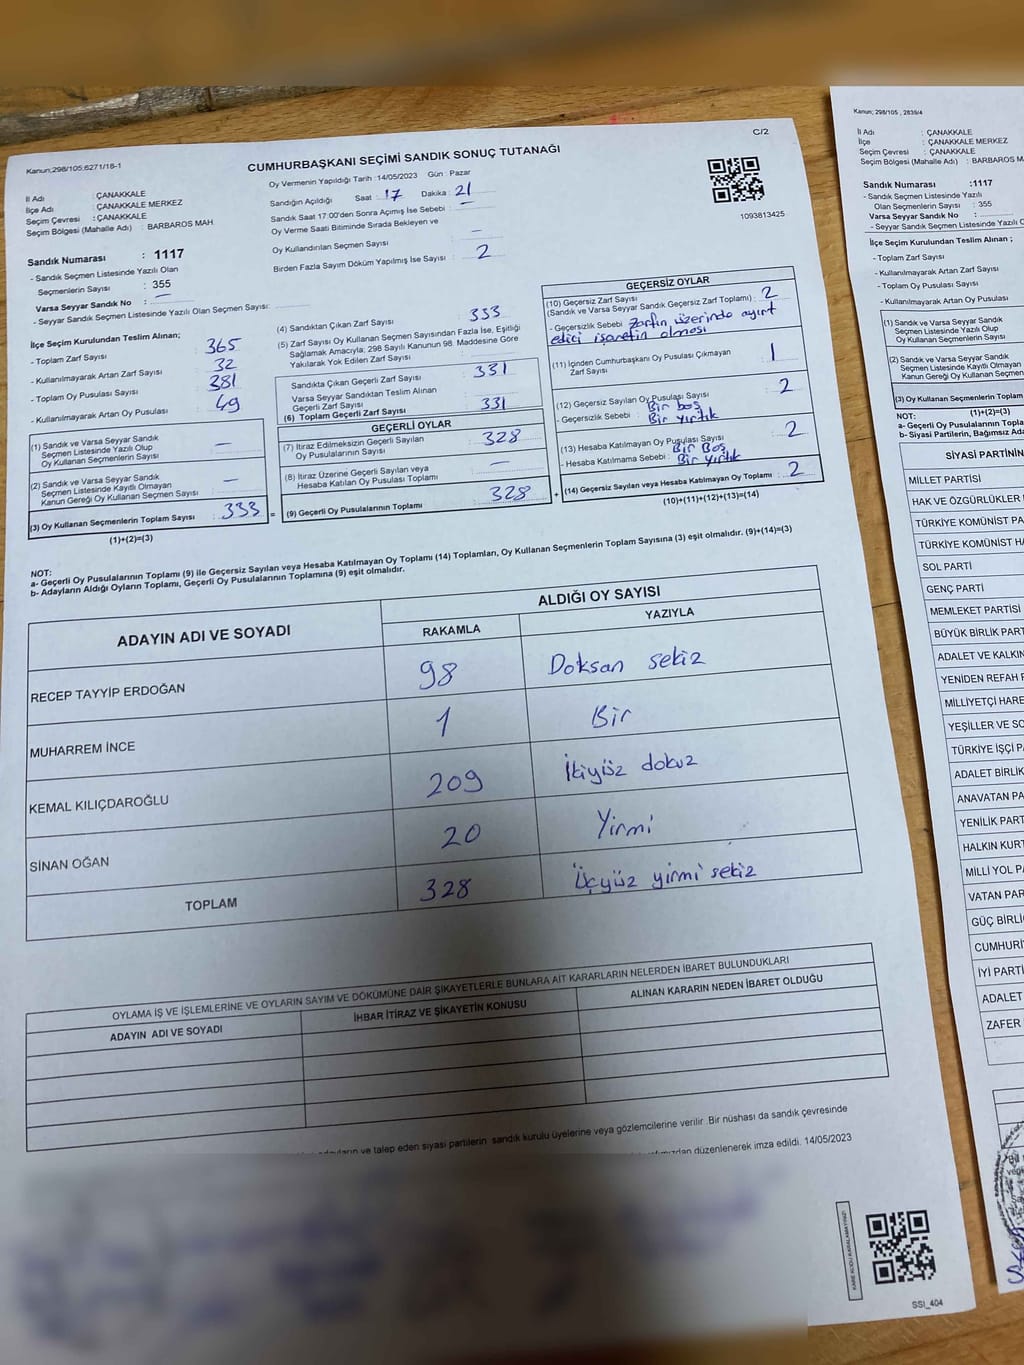 C/2
Kanun;298/105;6271/18-1
CUMHURBAŞKANI SEÇİMİ SANDIK SONUÇ TUTANAĞI
Oy Vermenin Yapıldığı Tarih :14/05/2023 Gün : Pazar
İl Adı : ÇANAKKALE
İlçe Adı : ÇANAKKALE MERKEZ
Seçim Çevresi : ÇANAKKALE
Seçim Bölgesi (Mahalle Adı) : BARBAROS MAH.
Sandığın Açıldığı Saat : 17 Dakika : 21
Sandık Saat 17:00'den Sonra Açımış İse Sebebi : —
Oy Verme Saati Bitiminde Sırada Bekleyen ve
Oy Kullandırılan Seçmen Sayısı : —
Birden Fazla Sayım Döküm Yapılmış İse Sayısı : 2
1093813425
Sandık Numarası : 1117
- Sandık Seçmen Listesinde Yazılı Olan
Seçmenlerin Sayısı : 355
Varsa Seyyar Sandık No : —
- Seyyar Sandık Seçmen Listesinde Yazılı Olan Seçmen Sayısı:
İlçe Seçim Kurulundan Teslim Alınan;
- Toplam Zarf Sayısı : 365
- Kullanılmayarak Artan Zarf Sayısı : 32
- Toplam Oy Pusulası Sayısı : 381
- Kullanılmayarak Artan Oy Pusulası : 49
(1) Sandık ve Varsa Seyyar Sandık
Seçmen Listesinde Yazılı Olup
Oy Kullanan Seçmenlerin Sayısı : —
(2) Sandık ve Varsa Seyyar Sandık
Seçmen Listesinde Kayıtlı Olmayan
Kanun Gereği Oy Kullanan Seçmen Sayısı : —
(3) Oy Kullanan Seçmenlerin Toplam Sayısı : 333 =
(1)+(2)=(3)
(4) Sandıktan Çıkan Zarf Sayısı : 333
(5) Zarf Sayısı Oy Kullanan Seçmen Sayısından Fazla İse, Eşitliği
Sağlamak Amacıyla; 298 Sayılı Kanunun 98. Maddesine Göre
Yakılarak Yok Edilen Zarf Sayısı :
Sandıkta Çıkan Geçerli Zarf Sayısı : 331
Varsa Seyyar Sandıktan Teslim Alınan
Geçerli Zarf Sayısı :
(6) Toplam Geçerli Zarf Sayısı : 331
GEÇERLİ OYLAR
(7) İtiraz Edilmeksizin Geçerli Sayılan
Oy Pusulalarının Sayısı : 328
(8) İtiraz Üzerine Geçerli Sayılan veya
Hesaba Katılan Oy Pusulası Toplamı : —
(9) Geçerli Oy Pusulalarının Toplamı : 328 +
GEÇERSİZ OYLAR
(10) Geçersiz Zarf Sayısı : 2
(Sandık ve Varsa Seyyar Sandık Geçersiz Zarf Toplamı)
- Geçersizlik Sebebi : Zarfın üzerinde ayırt
edici işaretin olması
(11) İçinden Cumhurbaşkanı Oy Pusulası Çıkmayan
Zarf Sayısı : 1
(12) Geçersiz Sayılan Oy Pusulası Sayısı : 2
- Geçersizlik Sebebi : Bir boş
Bir yırtık
(13) Hesaba Katılmayan Oy Pusulası Sayısı : 2
- Hesaba Katılmama Sebebi : Bir Boş
Bir yırtık
(14) Geçersiz Sayılan veya Hesaba Katılmayan Oy Toplamı : 2
(10)+(11)+(12)+(13)=(14)
NOT:
a- Geçerli Oy Pusulalarının Toplamı (9) ile Geçersiz Sayılan veya Hesaba Katılmayan Oy Toplamı (14) Toplamları, Oy Kullanan Seçmenlerin Toplam Sayısına (3) eşit olmalıdır. (9)+(14)=(3)
b- Adayların Aldığı Oyların Toplamı, Geçerli Oy Pusulalarının Toplamına (9) eşit olmalıdır.
ADAYIN ADI VE SOYADI
ALDIĞI OY SAYISI
RAKAMLA YAZIYLA
RECEP TAYYİP ERDOĞAN 98 Doksan sekiz
MUHARREM İNCE 1 Bir
KEMAL KILIÇDAROĞLU 209 İkiyüz dokuz
SİNAN OĞAN 20 Yirmi
TOPLAM 328 Üçyüz yirmi sekiz
OYLAMA İŞ VE İŞLEMLERİNE VE OYLARIN SAYIM VE DÖKÜMÜNE DAİR ŞİKAYETLERLE BUNLARA AİT KARARLARIN NELERDEN İBARET BULUNDUKLARI
ADAYIN ADI VE SOYADI İHBAR İTİRAZ VE ŞİKAYETİN KONUSU ALINAN KARARIN NEDEN İBARET OLDUĞU
ve talep eden siyasi partilerin sandık kurulu üyelerine veya gözlemcilerine verilir .Bir nüshası da sandık çevresinde
düzenlenerek imza edildi. 14/05/2023
KARE KODU KARALAMAYINIZ!
SSI_404
Kanun; 298/105 , 2839/4
İl Adı : ÇANAKKALE
İlçe : ÇANAKKALE MERKEZ
Seçim Çevresi : ÇANAKKALE
Seçim Bölgesi (Mahalle Adı) : BARBAROS MA
Sandık Numarası :1117
- Sandık Seçmen Listesinde Yazılı
Olan Seçmenlerin Sayısı : 355
Varsa Seyyar Sandık No :
- Seyyar Sandık Seçmen Listesinde Yazılı O
İlçe Seçim Kurulundan Teslim Alınan ;
- Toplam Zarf Sayısı
- Kullanılmayarak Artan Zarf Sayısı
- Toplam Oy Pusulası Sayısı
- Kullanılmayarak Artan Oy Pusulası
(1) Sandık ve Varsa Seyyar Sandık
Seçmen Listesinde Yazılı Olup
Oy Kullanan Seçmenlerin Sayısı
(2) Sandık ve Varsa Seyyar Sandık
Seçmen Listesinde Kayıtlı Olmayan
Kanun Gereği Oy Kullanan Seçmen
(3) Oy Kullanan Seçmenlerin Toplam
NOT: (1)+(2)=(3)
a- Geçerli Oy Pusulalarının Topla
b- Siyasi Partilerin, Bağımsız Ada
SİYASİ PARTİNİN
MİLLET PARTİSİ
HAK VE ÖZGÜRLÜKLER
TÜRKİYE KOMÜNİST PA
TÜRKİYE KOMÜNİST HA
SOL PARTİ
GENÇ PARTİ
MEMLEKET PARTİSİ
BÜYÜK BİRLİK PART
ADALET VE KALKIN
YENİDEN REFAH P
MİLLİYETÇİ HARE
YEŞİLLER VE SO
TÜRKİYE İŞÇİ PA
ADALET BİRLİK
ANAVATAN PA
YENİLİK PART
HALKIN KURT
MİLLİ YOL P
VATAN PAR
GÜÇ BİRLİĞ
CUMHURİY
İYİ PARTİ
ADALET
ZAFER